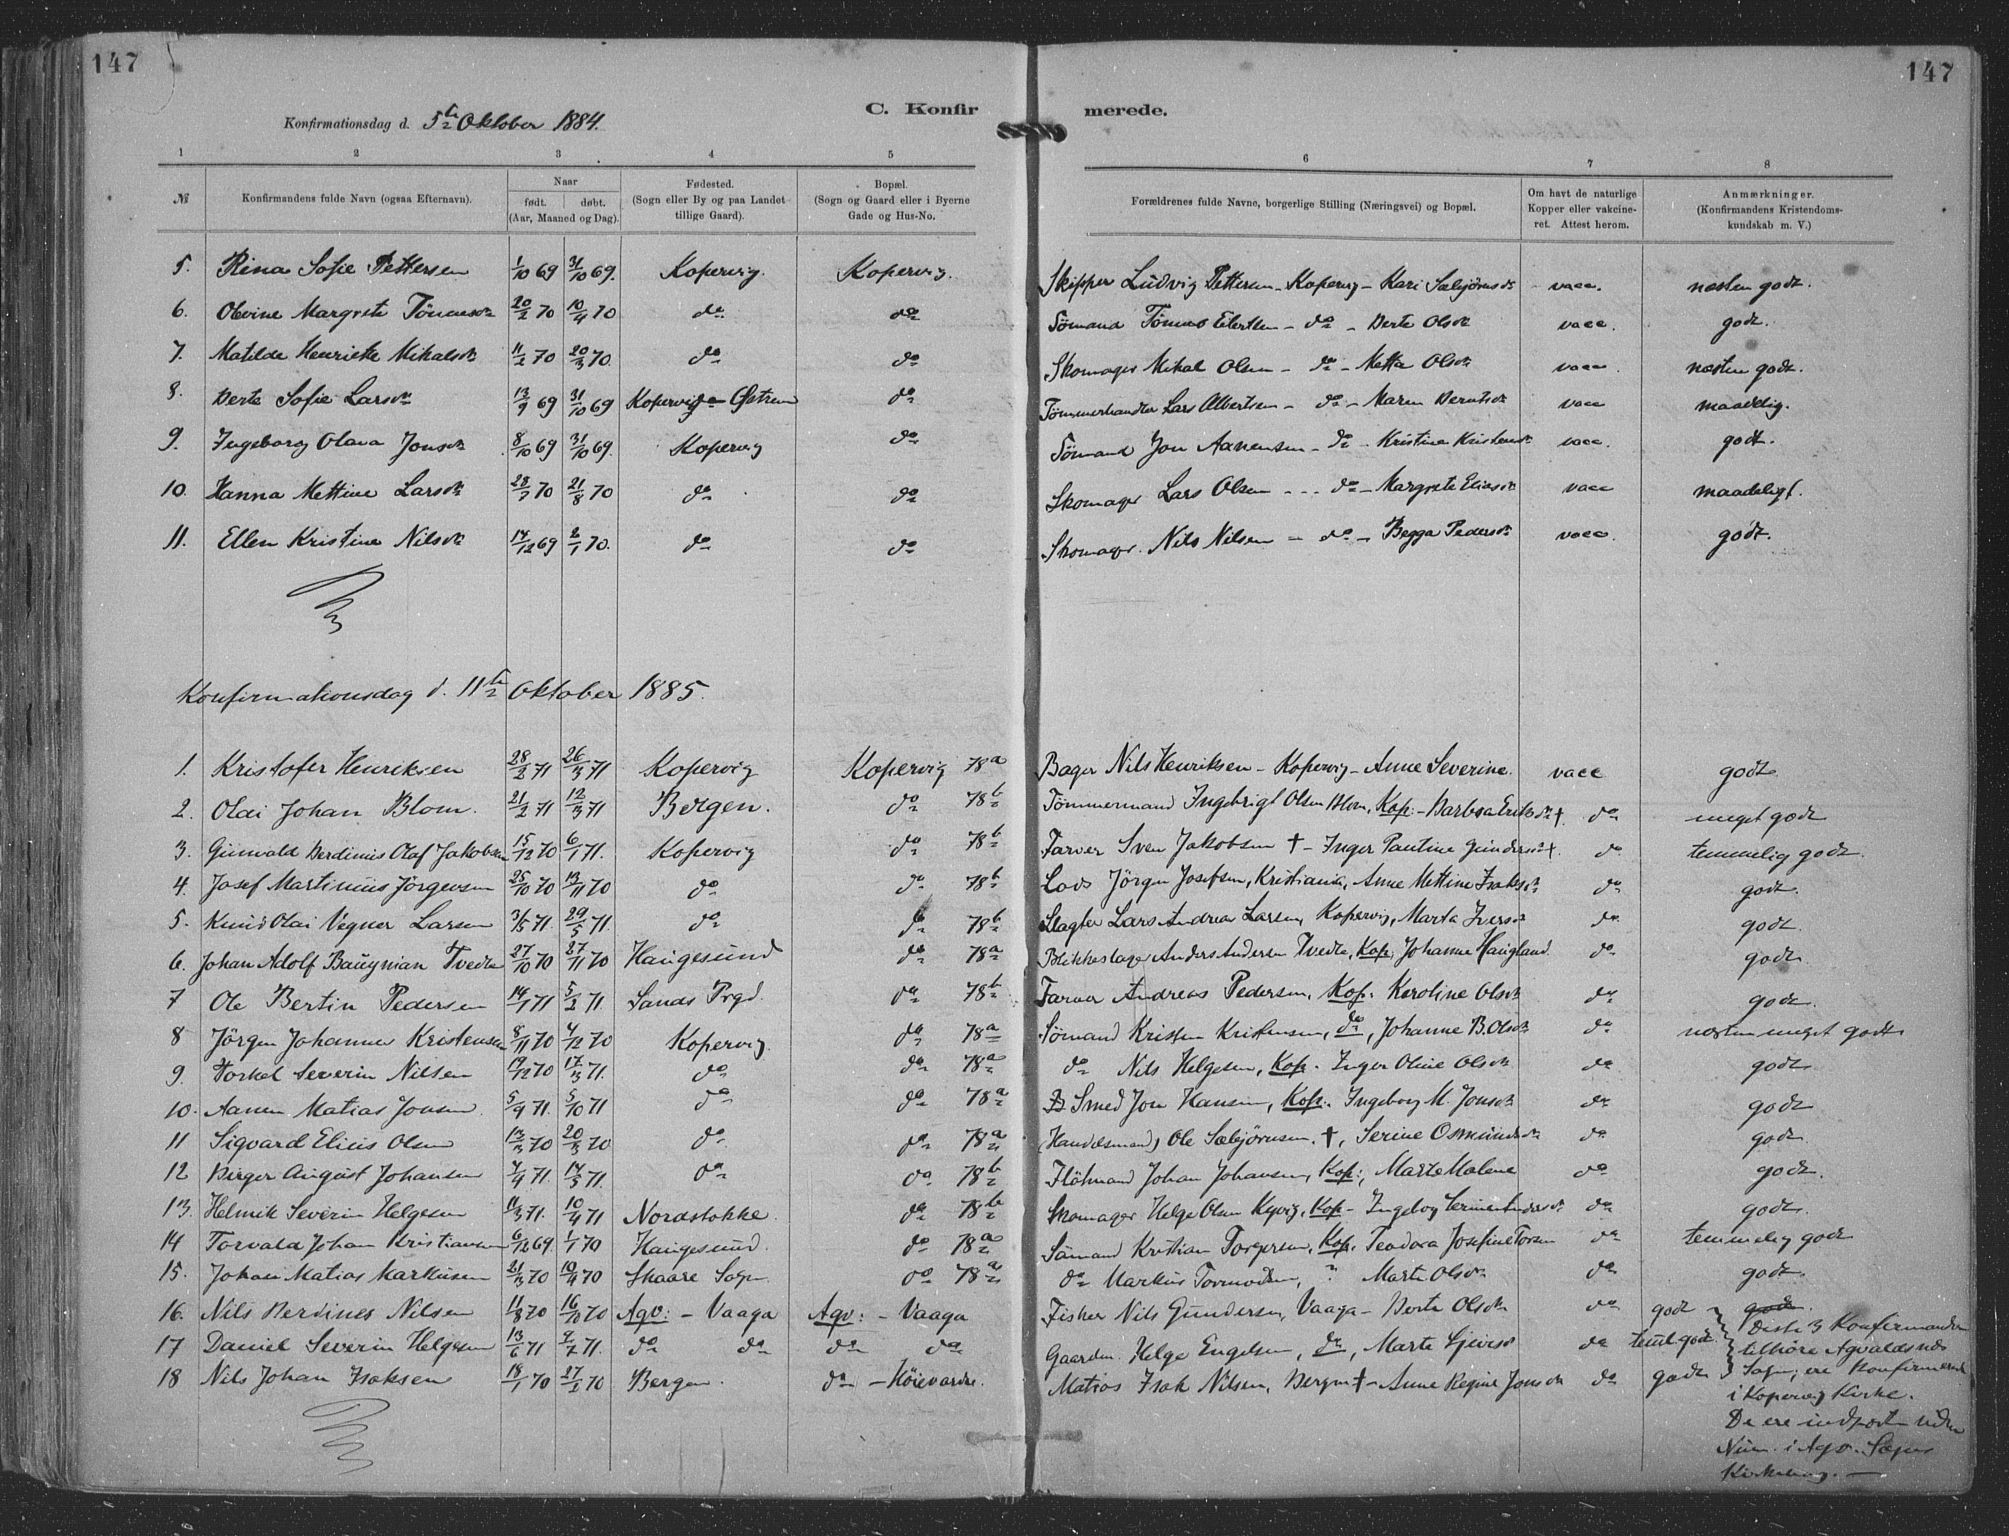 147
147
C. Konfir merede.
Konfirmationsdag d. 5te Oktober 1884.
1 2 3 4 5 6 7 8
№ Konfirmandens fulde Navn (ogsaa Efternavn). Naar født. døbt. (Aar, Maaned og Dag). Fødested. (Sogn eller By og paa Landet tillige Gaard). Bopæl. (Sogn og Gaard eller i Byerne Gade og Hus-No. Forældrenes fulde Navne, borgerlige Stilling (Næringsvei) og Bopæl. Om havt de naturlige Kopper eller vakcineret. Attest herom. Anmærkninger. (Konfirmandens Kristendomskundskab m. V.)
5. Rina Sofie Pettersen 1/10 69 31/10 69. Kopervig. Kopervig. Skipper Ludvig Pettersen - Kopervig - Kari vacc. næsten godt.
6. Olevine Margrete 20/2 70 10/4 70 do do Sømand Tønnes Eilertsen - do - Berte Olsdt vacc. godt.
7. Matilde Henriette Mikalsdt 11/2 70 20/3 70. do do Skomager Mikal Olsen - do - Metta Olsdt vacc. næsten godt.
8. Berte Sofie Larsdt 13/9 69 31/10 69 Kopervig - Østrem do Tømmerhandler Lars Albertsen - do - Maren Berntsdt vacc maadelig.
9. Ingeborg Olava Jonsdt 8/10 69 31/10 69. Kopervig do Sømand Jon Aanensen - do - Kristine vacc. godt.
10. Hanna Mettine Larsdt 28/7 70 21/8 70 do do Skomager Lars Olsen - - - do - Margrete Eliasdt vacc maadeligt.
11. Ellen Kristine Nilsdt 14/12 69 2/1 70. do do Skomager. Nils Nilsen - do - Begga Pedersdt vacc. godt.
Konfirmationsdag d. 11te Oktober 1885.
1. Kristofer Henriksen 28/2 71 26/3 71 Kopervig Kopervig 78a Bager Nils Henriksen - Kopervig - Anne Severine. vacc godt
2. Olai Johan Blom. 21/2 71 12/3 71 Bergen. do 78b Tømmermand Ingebrigt Olsen Blom, Kop: - Eriksdt †. do meget godt
3. Gunvald Berdinus Olaf Jakobsen 15/12 70 6/1 71. Kopervig do 78b Farver Sven Jakobsen † - Inger Pauline Gundersdt †. do temmelig godt.
4. Josef Martinius Jørgensen 25/10 70 13/11 70 do do 78b Lods Jørgen Josefsen, Kristiania, Anne Mettine Isaksdt do godt.
5. Knud Olai Vegner Larsen 3/5 71. 29/5 71. do do 78b Slagter Lars Andreas Larsen, Kopervig, Marta Iversdt do godt.
6. Johan Adolf Tvedte 27/10 70 27/11 70 Haugesund do 78a Blikkeslager Anders Andersen Tvedte, Kop. Johanne Haugland do godt
7 Ole Bertin Pedersen 14/1 71 5/2 71. Sands Prgd. do 78b Farver Andreas Pedersen, Kop. Karoline Olsdt do godt.
8 Jørgen Johannes Kristensen 8/11 70 4/12 70 Kopervig. do 78a Sømand Kristen Kristensen, do, Johanne B. Olsdt do næsten meget godt
9. Torkel Severin Nilsen 19/12 70 17/3 71. do do 78a do Nils Helgesen, Kop. Inger Oline Olsdt do godt
10. Aanen Matias Jonsen 5/9 71. 5/10 71 do do 78a B Smed Jon Hansen, Kop. Ingeborg M. Jonsdt do godt
11 Sigvard Elius Olsen 13/3 70 20/3 70 do do 78a (Handelsmand) Ole Sæbjørnsen. †, Serine Osmundsdt do godt.
12 Birger August Johansen 4/4 71. 14/5 71. do do 78b Johan Johansen, Kop:, Marte Malene do godt.
13. Helmik Severin Helgesen 11/3 71. 10/4 71 Nordstokke. do 78b Skomager Helge Olsen Kop - Ingeborg do godt.
14 Torvald Johan Kristiansen 6/12 69. 1/1 70 Haugesund. do 78a Sømand Kristian Torgersen, Kop. Teodora Josefine do temmelig godt
15. Johan Matias Markusen 21/3 70 10/4 70 Skaare Sogn do 78a do Markus Tormodsen, ? Marte Olsdt do godt.
16. Nils Berdines Nilsen 11/8 70 16/10 70 Agv: - Vaaga Agv: - Vaaga Fisker Nils Gundersen, Vaaga - Berte Olsdt do godt godt.
17 Daniel Severin Helgesen 13/6 71 2/7 71. do do do do Gaardm. Helge Engelsen, do, Marte do teml. godt
18 Nils Johan Isaksen 18/1 70 27/2 70 Bergen. do - Høievarde. Matros Isak Nilsen, Bergen † - Anne Regine Jonsdt do godt
Disse 3 Konfirmander
tilhøre Agvaldsnes
Sogn; ere konfirmerede
i Kopervig Kirke.
De ere indført uden
Num. i Agv. Sogns
Kirkebog. -